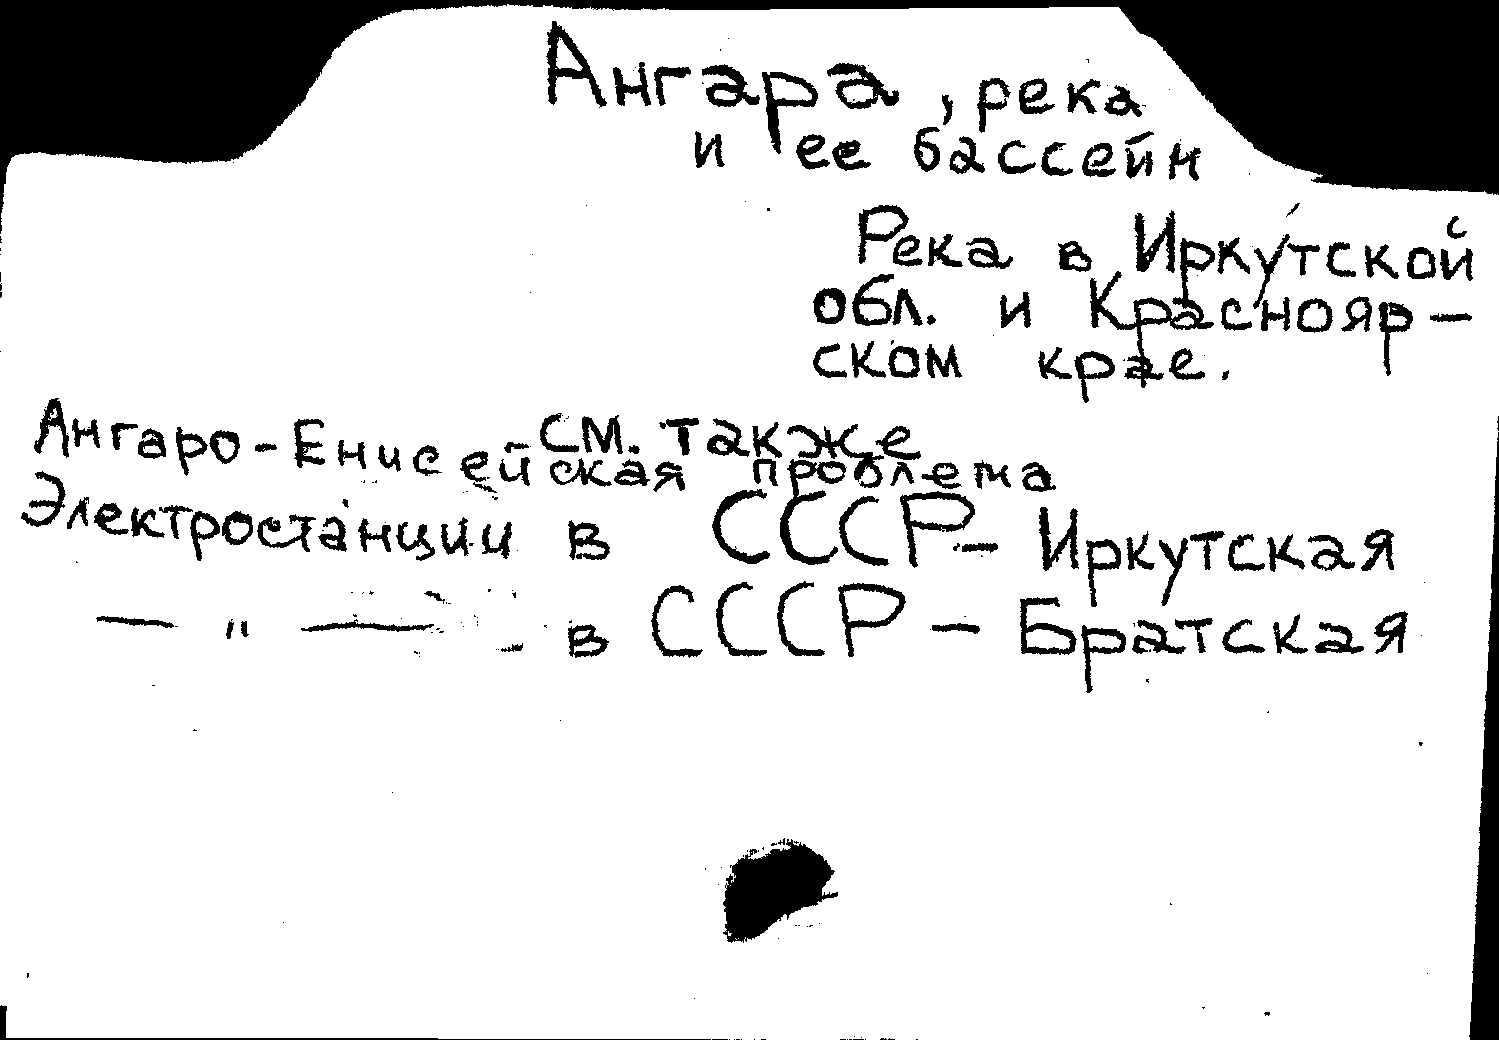 Ангара, река
и ее бассейн
Река в Иркутской
обл. и Краснояр-
ском крае.
см. также
Ангаро-Енисейская проблема
Электростанции в СССР - Иркутская
— " — в СССР - Братская